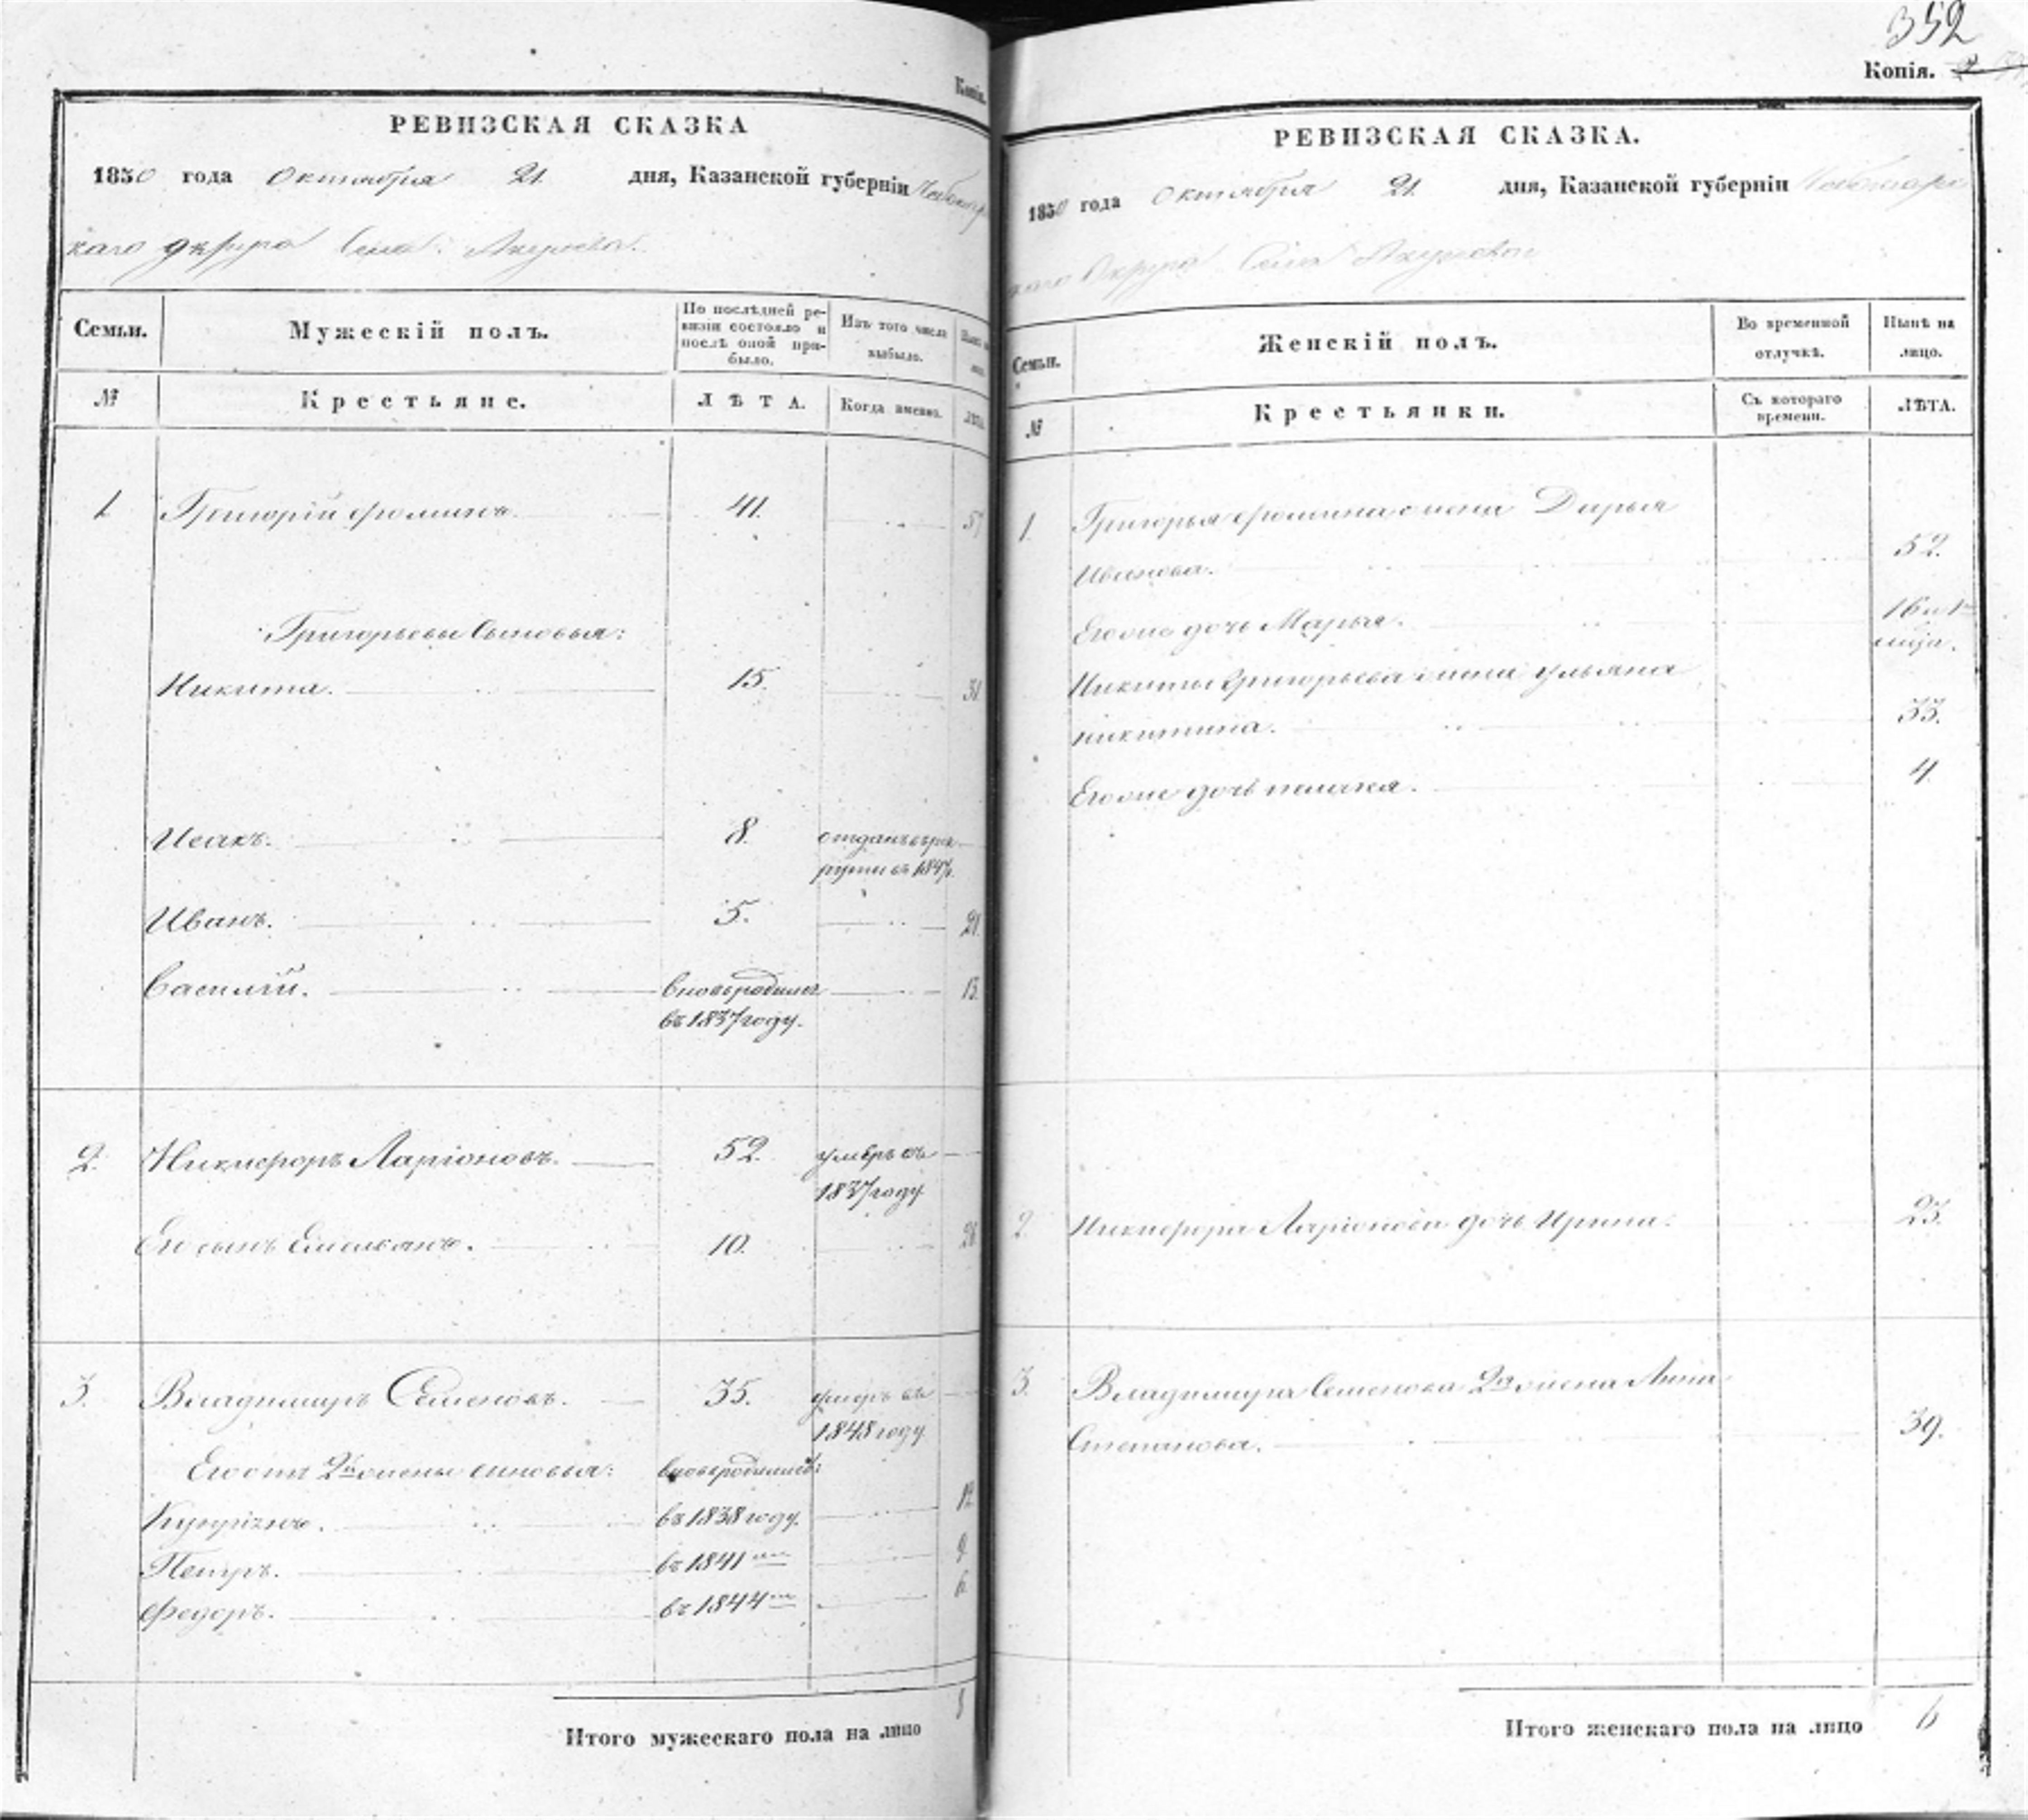 Копія.
РЕВИЗСКАЯ СКАЗКА
1850 года Октября 21. дня, Казанской губерніи Чебоксар
каго округа Села Акулева.
Семьи.
Мужескій полъ.
По послѣдней ре-
визіи состояло и
послѣ оной при-
было.
Изъ того числа
выбыло.
№
Крестьяне.
ЛѢТА.
Когда именно.
1. Григорій Фроминъ. 41. 57
Григорьевы сыновья:
Никита. 15. 31
Исакъ. 8. отданъ въ рек
руты въ 1847.
Иванъ. 5. 21.
Василій. вновь родился 13.
въ 1837 году.
2. Никифоръ Ларіоновъ. 52. умеръ въ
1837 году
Его сынъ Емельянъ. 10. 26
3. Владимиръ Семеновъ. 35. умеръ въ
1848 году
Его от 2й жены сыновья: вновь родились:
въ 1838 году. 12
Петръ. въ 1841 9
Федоръ. въ 1844 6
Итого мужескаго пола на лицо 8
352
Копія.
РЕВИЗСКАЯ СКАЗКА.
1850 года Октября 21. дня, Казанской губерніи Чебоксарс
каго Округа Села Акулева
Семьи.
Женскій полъ.
Во временной
отлучкѣ.
Нынѣ на
лицо.
№
Крестьянки.
Съ котораго
времени.
ЛѢТА.
1. Григорья Фромина жена Дарья
Иванова. 52.
Его же дочь Марья. 16 и 1
мѣца.
Никиты Григорьева жена Ульяна
Никитина. 33.
Его же дочь 4.
2. Никифора Ларіонова дочь Ирина. 23.
3. Владимира Семенова 2я жена Анна
Степанова. 39.
Итого женскаго пола на лицо 6